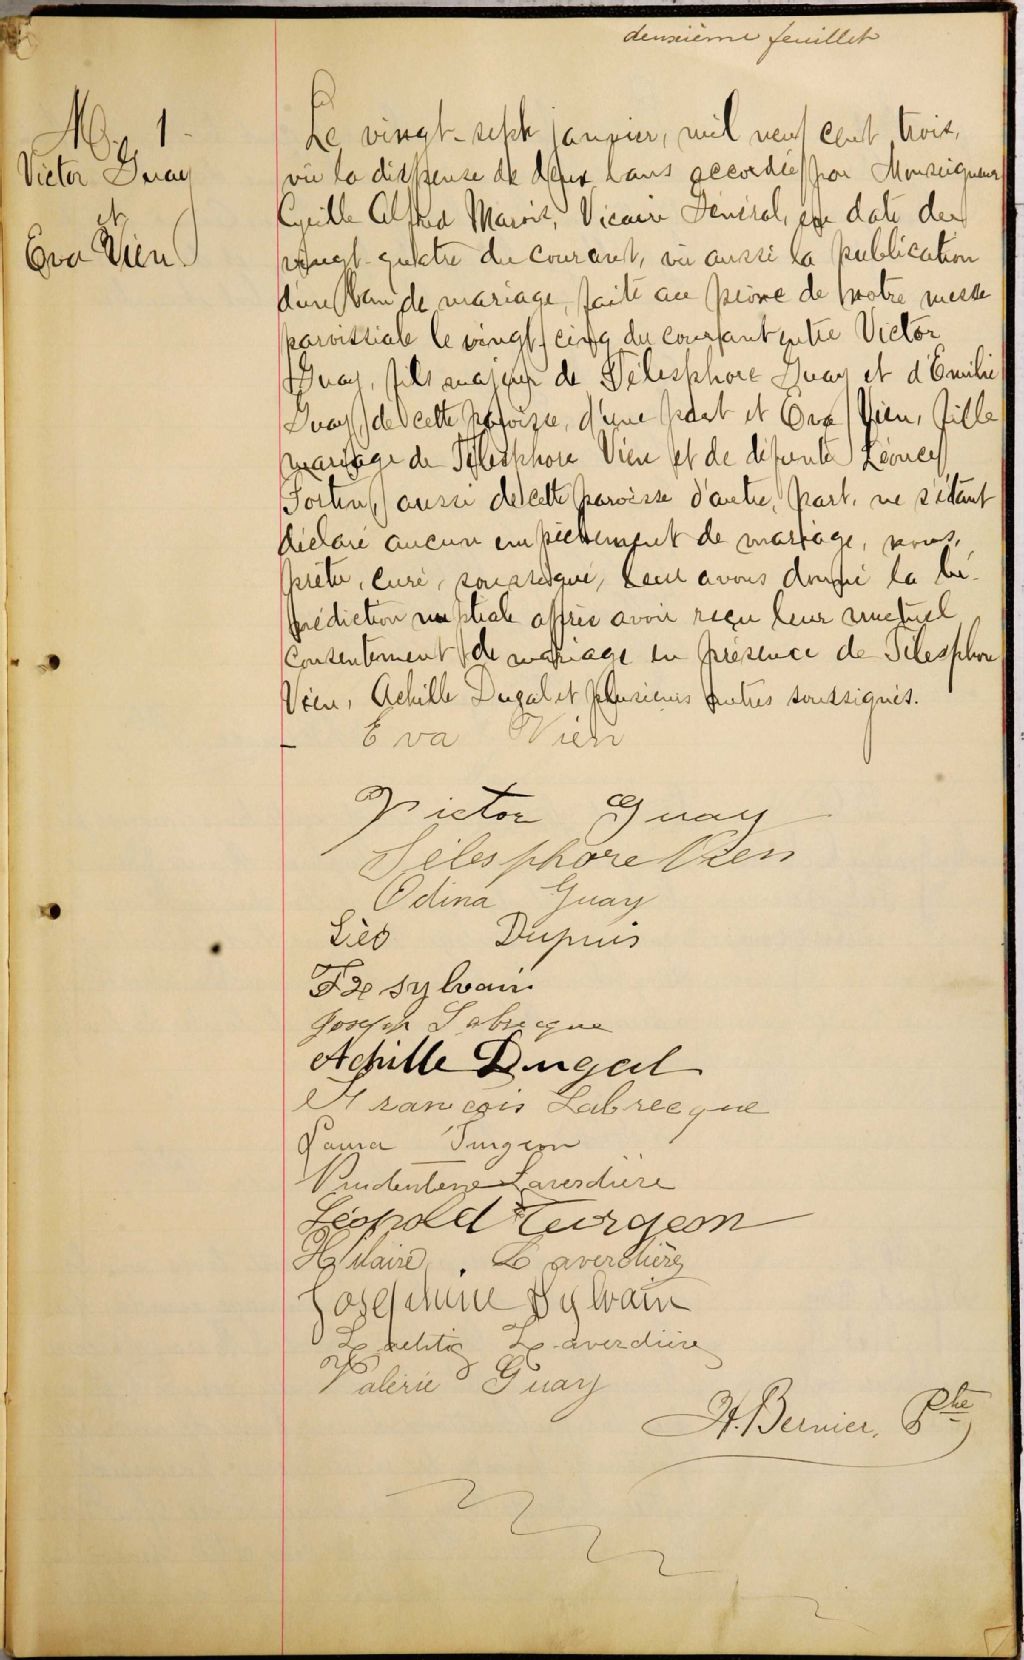 deuxième feuillet
M. 1
Victor Guay
et
Eva Vien
Le vingt-sept janvier, mil neuf cent trois,
vu la dispense de deux bans accordée par Monseigneur
Cyrille Alfred Marois, Vicaire Général, en date du
vingt-quatre du courant, vu aussi la publication
d'un ban de mariage, faite au prône de notre messe
paroissiale le vingt-cinq du courant entre Victor
Guay, fils majeur de Télesphore Guay et d'Emilie
Guay, de cette paroisse, d'une part et Eva Vien, fille
mariage de Télesphore Vien et de défunte Léonce
Fortin, aussi de cette paroisse d'autre part, ne s'étant
déclaré aucun empêchement de mariage, nous,
prêtre, curé, soussigné, leur avons donné la bé-
nédiction nuptiale après avoir reçu leur mutuel
consentement de mariage en présence de Télesphore
Vien, Achille Dugal et plusieurs autres soussignés.
Eva Vien
Victor Guay
Télesphore Vien
Odina Guay
Léo Dupuis
Fx Sylvain
Joseph Labrecque
Achille Dugal
François Labrecque
Laura Turgeon
Prudentine Laverdière
Léopold Turgeon
Hilaire Laverdière
Joséphine Sylvain
Laetitia Laverdière
Valérie Guay
H. Bernier, Ptre